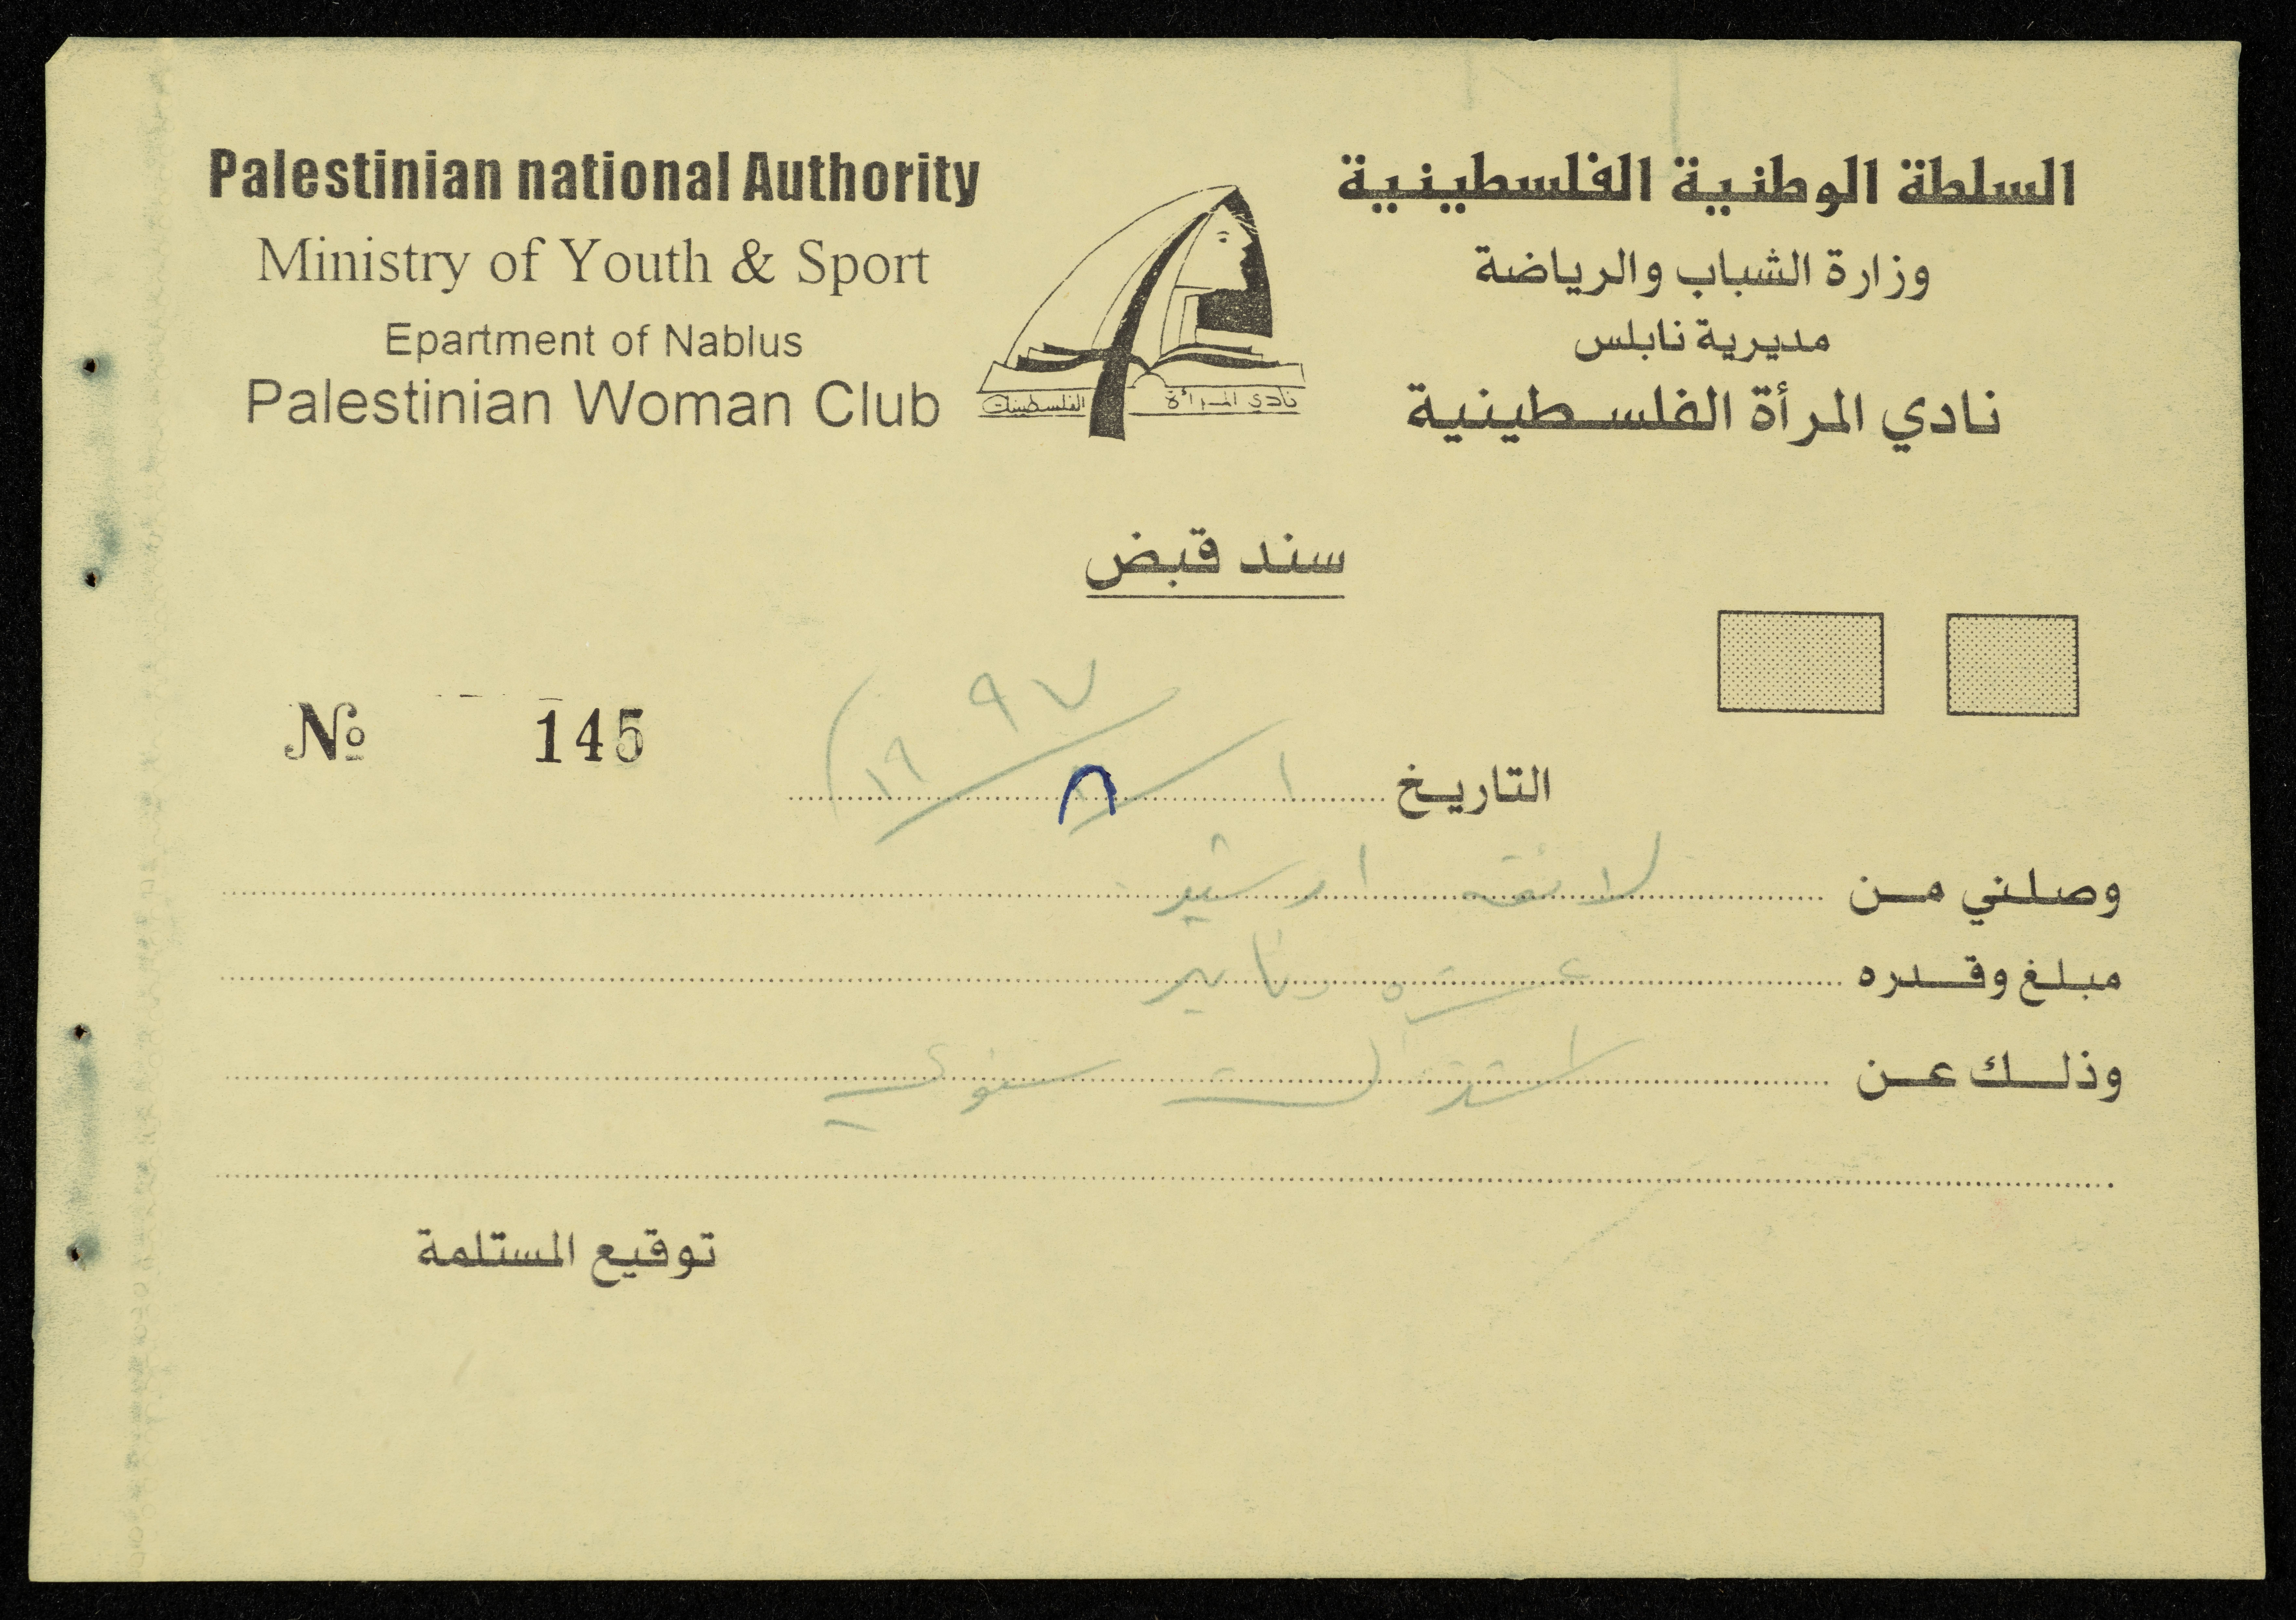 Palestinian national Authority
Ministry of Youth & Sport
Epartment of Nablus
Palestinian Woman Club
السلطة الوطنية الفلسطينية
وزارة الشباب والرياضة
مديرية نابلس
نادي المرأة الفلسطينية
نادي المرأة الفلسطينية
سند قبض
№ 145
التاريخ ١ / ٨ / ١٩٩٧
وصلني من
مبلغ وقدره عشرة دنانير
وذلك عن اشتراك سنوي
توقيع المستلمة